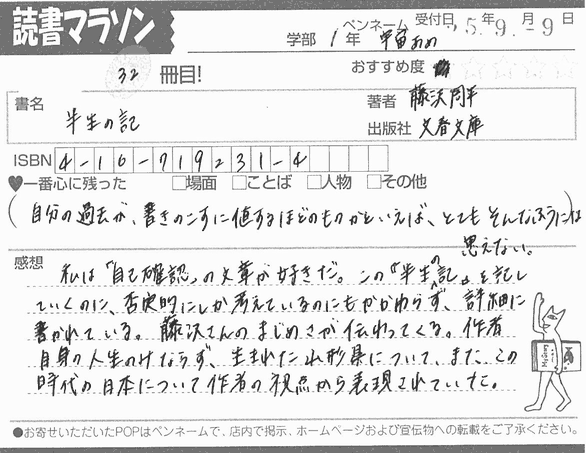 読書マラソン
学部 1年 ペンネーム 宇宙あめ 受付日 '5年9月-9日
32 冊目!
おすすめ度
書名 半生の記
著者 藤沢周平
出版社 文春文庫
ISBN 4-16-719231-4
♥一番心に残った □場面 □ことば □人物 □その他
(自分の過去が、書きのこすに値するほどのものかといえば、とてもそんなふうには
思えない。
感想
私は「自己確認」の文章が好きだ。この『半生の記』を記し
ていくのに、否定的にしか考えているのにもかかわらず、詳細に
書かれている。藤沢さんのまじめさが伝わってくる。作者
自身の人生のみならず、生まれた山形県について、また、この
時代の日本について作者の視点から表現されていた。
●お寄せいただいたPOPはペンネームで、店内で掲示、ホームページおよび宣伝物への転載をご了承ください。